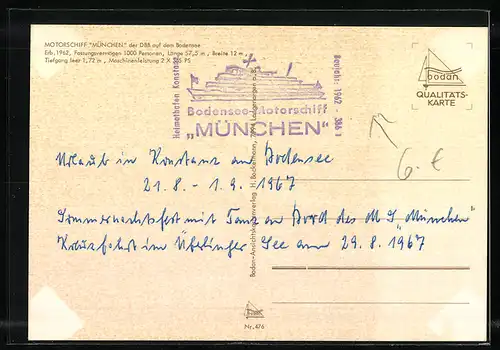 MOTORSCHIFF "MÜNCHEN" der DBB auf dem Bodensee
Erb. 1962, Fassungsvermögen 1000 Personen, Länge 57,5 m, Breite 12 m
Tiefgang leer 1,72 m, Maschinenleistung 2 X 385 PS
bodan
QUALITÄTS-
KARTE
Heimathafen Konstanz
Bodensee-Motorschiff
„MÜNCHEN"
Baujahr: 1962
6.€
Urlaub in Konstanz am Bodensee
21.8. - 1.9. 1967
Sommernachtsfest mit Tanz an Bord des M S „München"
Kreuzfahrt im Überlinger See am 29.8.1967
Bodan-Ansichtskartenverlag H. Bockelmann,
Nr. 476